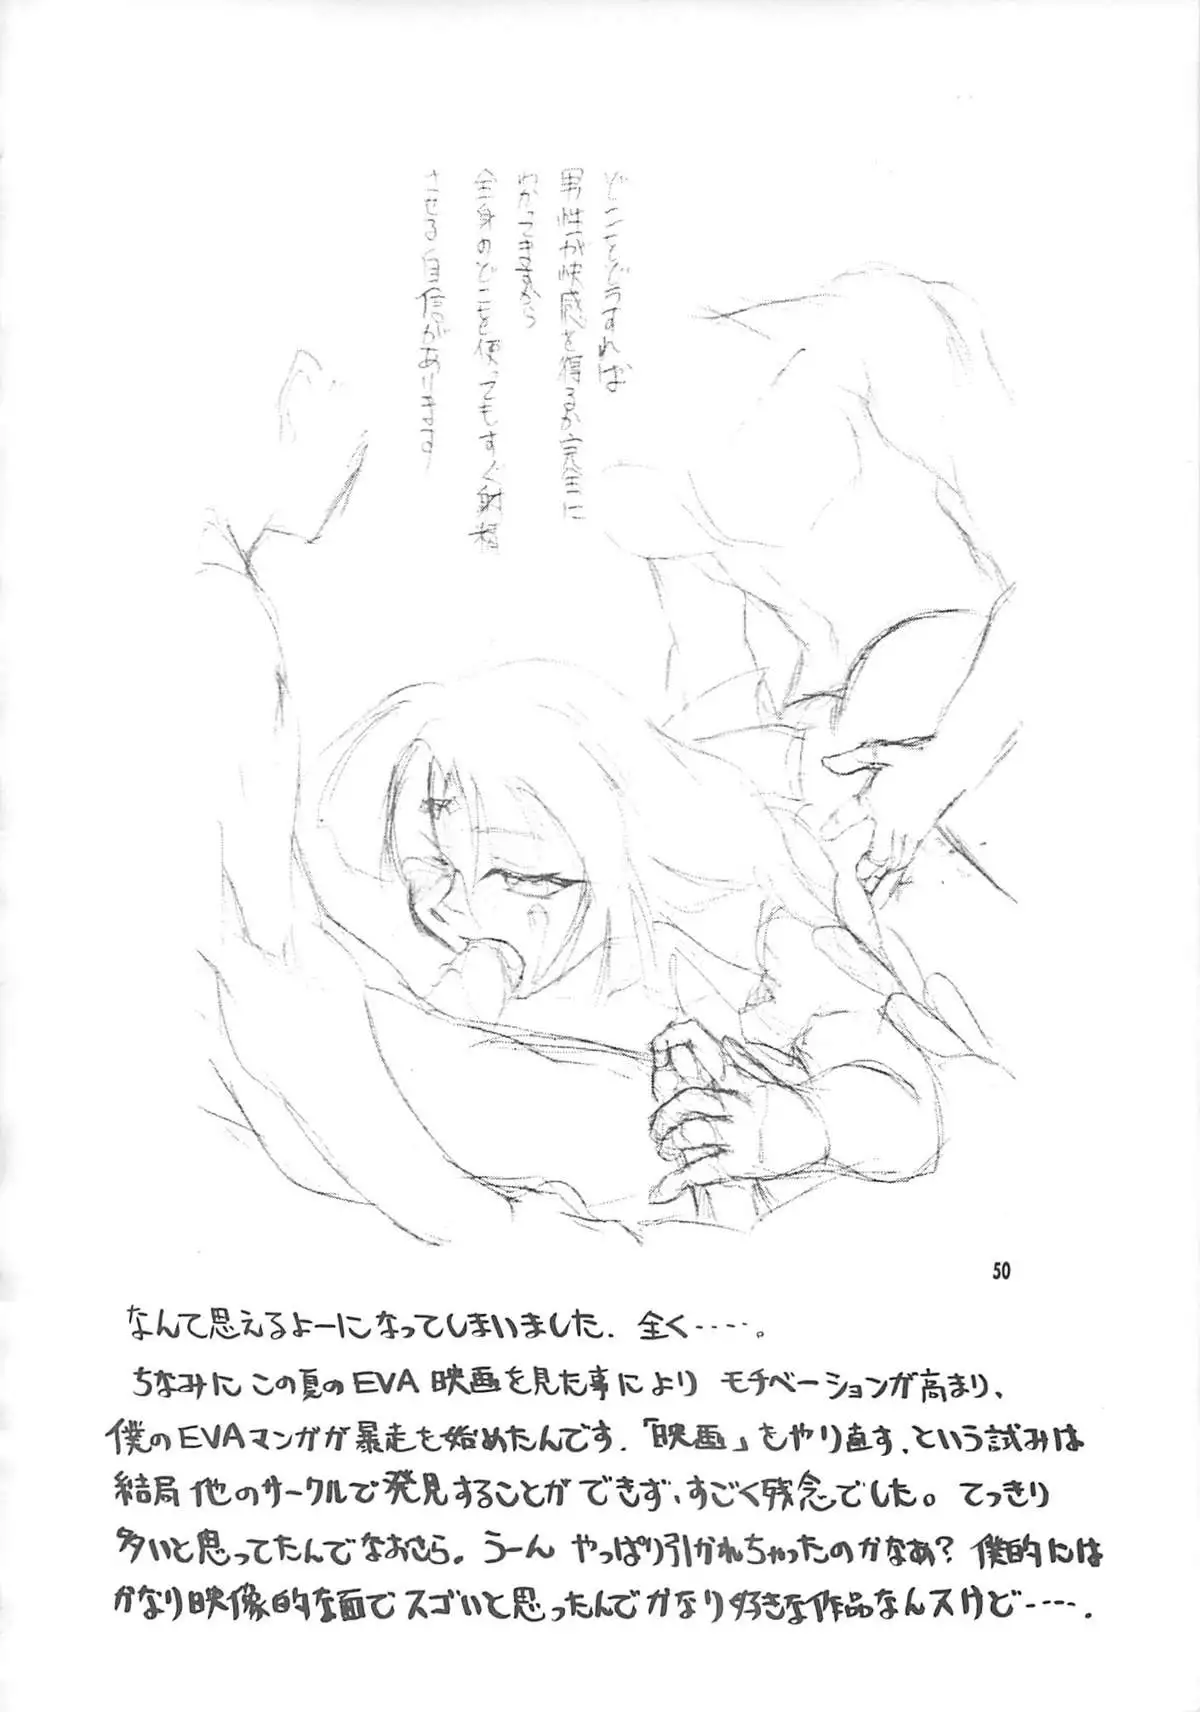 どこをどうすれば
男性が快感を得るか完全に
わかってますから
全身のどこを使ってもすぐ射精
させる自信があります
50
なんて思えるよーになってしまいました. 全く‥‥‥。
ちなみに この夏の EVA 映画を見た事により モチベーションが高まり、
僕の EVAマンガが暴走を始めたんです. 「映画」をやり直す、という試みは
結局 他のサークルで発見することができず、すごく残念でした。てっきり
多いと思ってたんでなおさら。うーん やっぱり引かれちゃったのかなあ? 僕的には
かなり映像的な面でスゴいと思ったんでかなり好きな作品なんスけど‥‥‥.